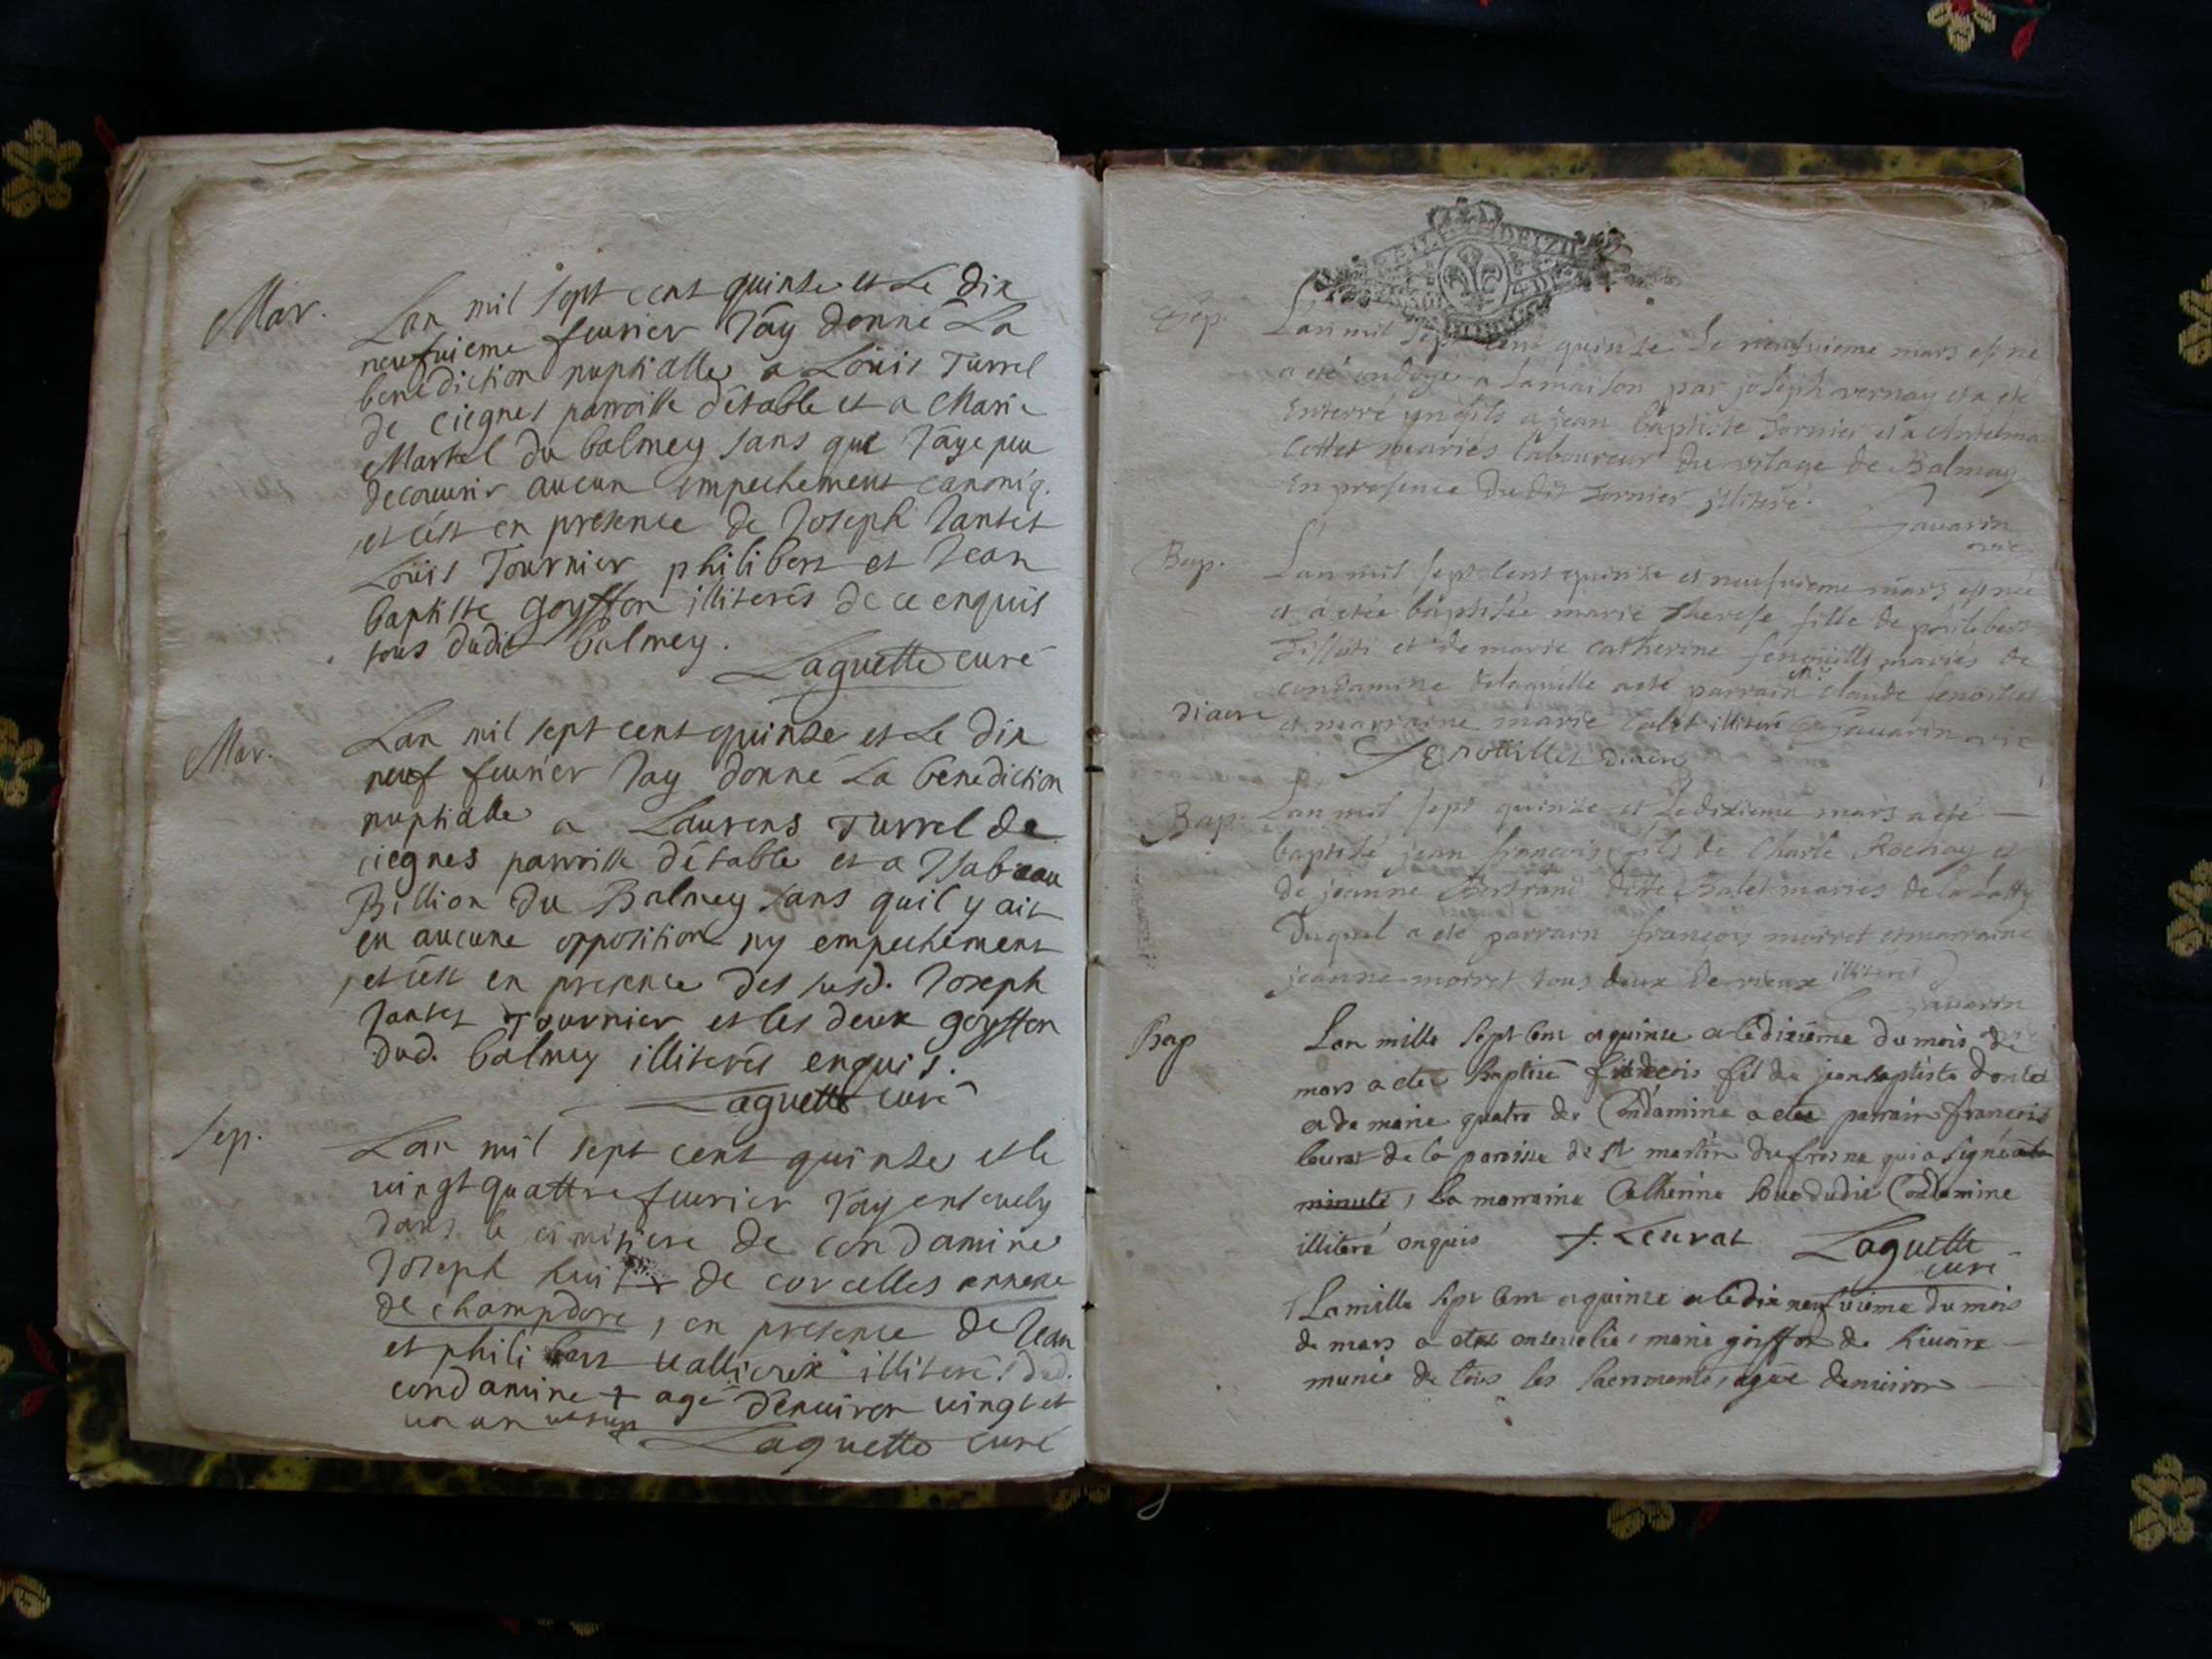 Mar.
Lan mil sept cent quinse et Le dix
neufuieme feurier Jay donné La
benediction nuptialle a Loüis Turrel
de ciegnes parroisse détable et a Marie
Martel du balmey sans que Jaye peu
decouurir aucun empechement canoniq.
et cést en presence de Joseph Jantet
Loüis Tournier philibert et Jean
baptiste goyffon illiterés de ce enquis
tous dudit balmey.
Laguette curé
Mar.
Lan mil sept cent quinse et Le dix
neuf feurier Jay donné La benediction
nuptialle a Laurens Turrel de
ciegnes parroisse détable et a Ysabeau
Billion du Balmey sans quil y ait
eu aucune opposition ny empechement
et cést en presence des susd. Joseph
Jantet Tournier et les deux goyffon
dud. balmey illiterés enquis.
Laguette curé
Sep.
Lan mil sept cent quinse et le
uingt quattre feurier Jay enseuely
dans le cimitiere de condamine
Joseph de corcelles annexe
de champdore, en presence de Jean
et philibert uallierix illiteré dud.
condamine + agé dénuiron uingt et
un an
Laguette curé
Sep.
Lan mil sept cent quinse le neufuieme mars est né
a eté ondoye a la maison par joseph vernay et a eté
enterré un fils a jean baptiste Tornier et a Antelma
Cottet mariés laboureur du vilage de Balmay
en presence du dit Tornier illiteré.
Sauarin
vic
Bap.
Lan mil sept cent quinse et neufuieme mars est née
et a etée baptisée marie therese fille de philibert
et de marie catherine senoüillet mariés de
condamine delaquelle a eté parrain claude senoillet
diacre
et marraine marie Colet illiteré Sauarin vic
Senoüillet diacre
Bap.
Lan mil sept quinse et Le dixieme mars a eté
baptisé jean françois fils de Charle Rochay et
de jeanne Bertrand ditte Balet mariés de la
Duquel a eté parrain françois moiret et marraine
jeanne moiret tous deux de vieux illiterés
Sauarin
Bap
Lan mille sept cent et quinse et le dixième du mois de
mars a eté baptisé françois fil de jean baptiste
et de marie quatre de Condamine a etée parrain françois
leurat de la paroisse de st martin du fresne qui a signé a la
minute, La marraine Catherine dudit Condamine
illiteré enquis f. Leurat Laguette
curé
La mille sept cent et quinse et le dix neufuieme du mois
de mars a eté enseuelie marie goiffon de
munie de tous les sacrements, agée denuiron